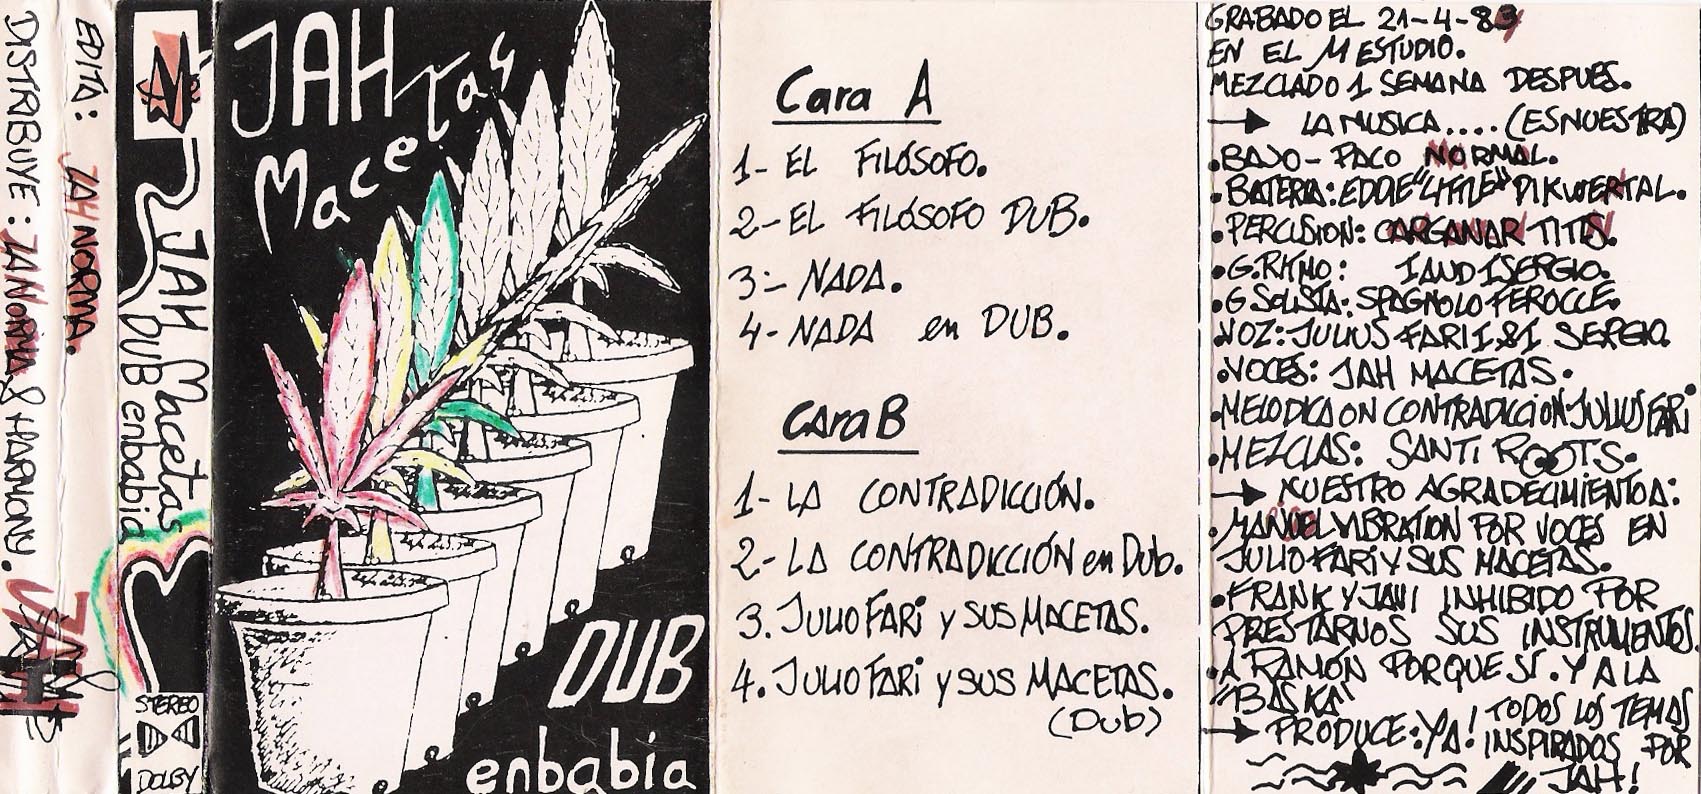 EDITA: JAH NORMA.
DISTRIBUYE: JAH NORMA & HARMONY.
JAH Macetas
DUB enbabia
STEREO
DOLBY
JAH
Macetas
DUB
enbabia
Cara A
1- EL FILÓSOFO.
2- EL FILÓSOFO DUB.
3- NADA.
4- NADA en DUB.
Cara B
1- LA CONTRADICCIÓN.
2- LA CONTRADICCIÓN en Dub.
3. JULIO FARI Y SUS MACETAS.
4. JULIO FARI Y SUS MACETAS.
(Dub)
GRABADO EL 21-4-89
EN EL M ESTUDIO.
MEZCLADO 1 SEMANA DESPUES.
LA MUSICA.... (ES NUESTRA)
•BAJO- PACO NORMAL.
•BATERIA: EDDIE "LITTLE" DIKWERTAL.
•PERCUSION: CARGANAR TITIS.
•G.RITMO: I AND I SERGIO.
•G SOLISTA: SPAGNOLO FEROCCE.
•VOZ: JULIUS FARI I&I SERGIO.
•VOCES: JAH MACETAS.
•MELODICA ON CONTRADICCION JULIUS FARI
•MEZCLAS: SANTI ROOTS.
NUESTRO AGRADECIMIENTO A:
•MANUEL VIBRATION POR VOCES EN
JULIO FARI Y SUS MACETAS.
•FRANK Y JAVI INHIBIDO POR
PRESTARNOS SUS INSTRUMENTOS.
•A RAMÓN PORQUE SÍ. Y A LA
"BASKA"
PRODUCE: YA! TODOS LOS TEMAS
INSPIRADOS POR
JAH!